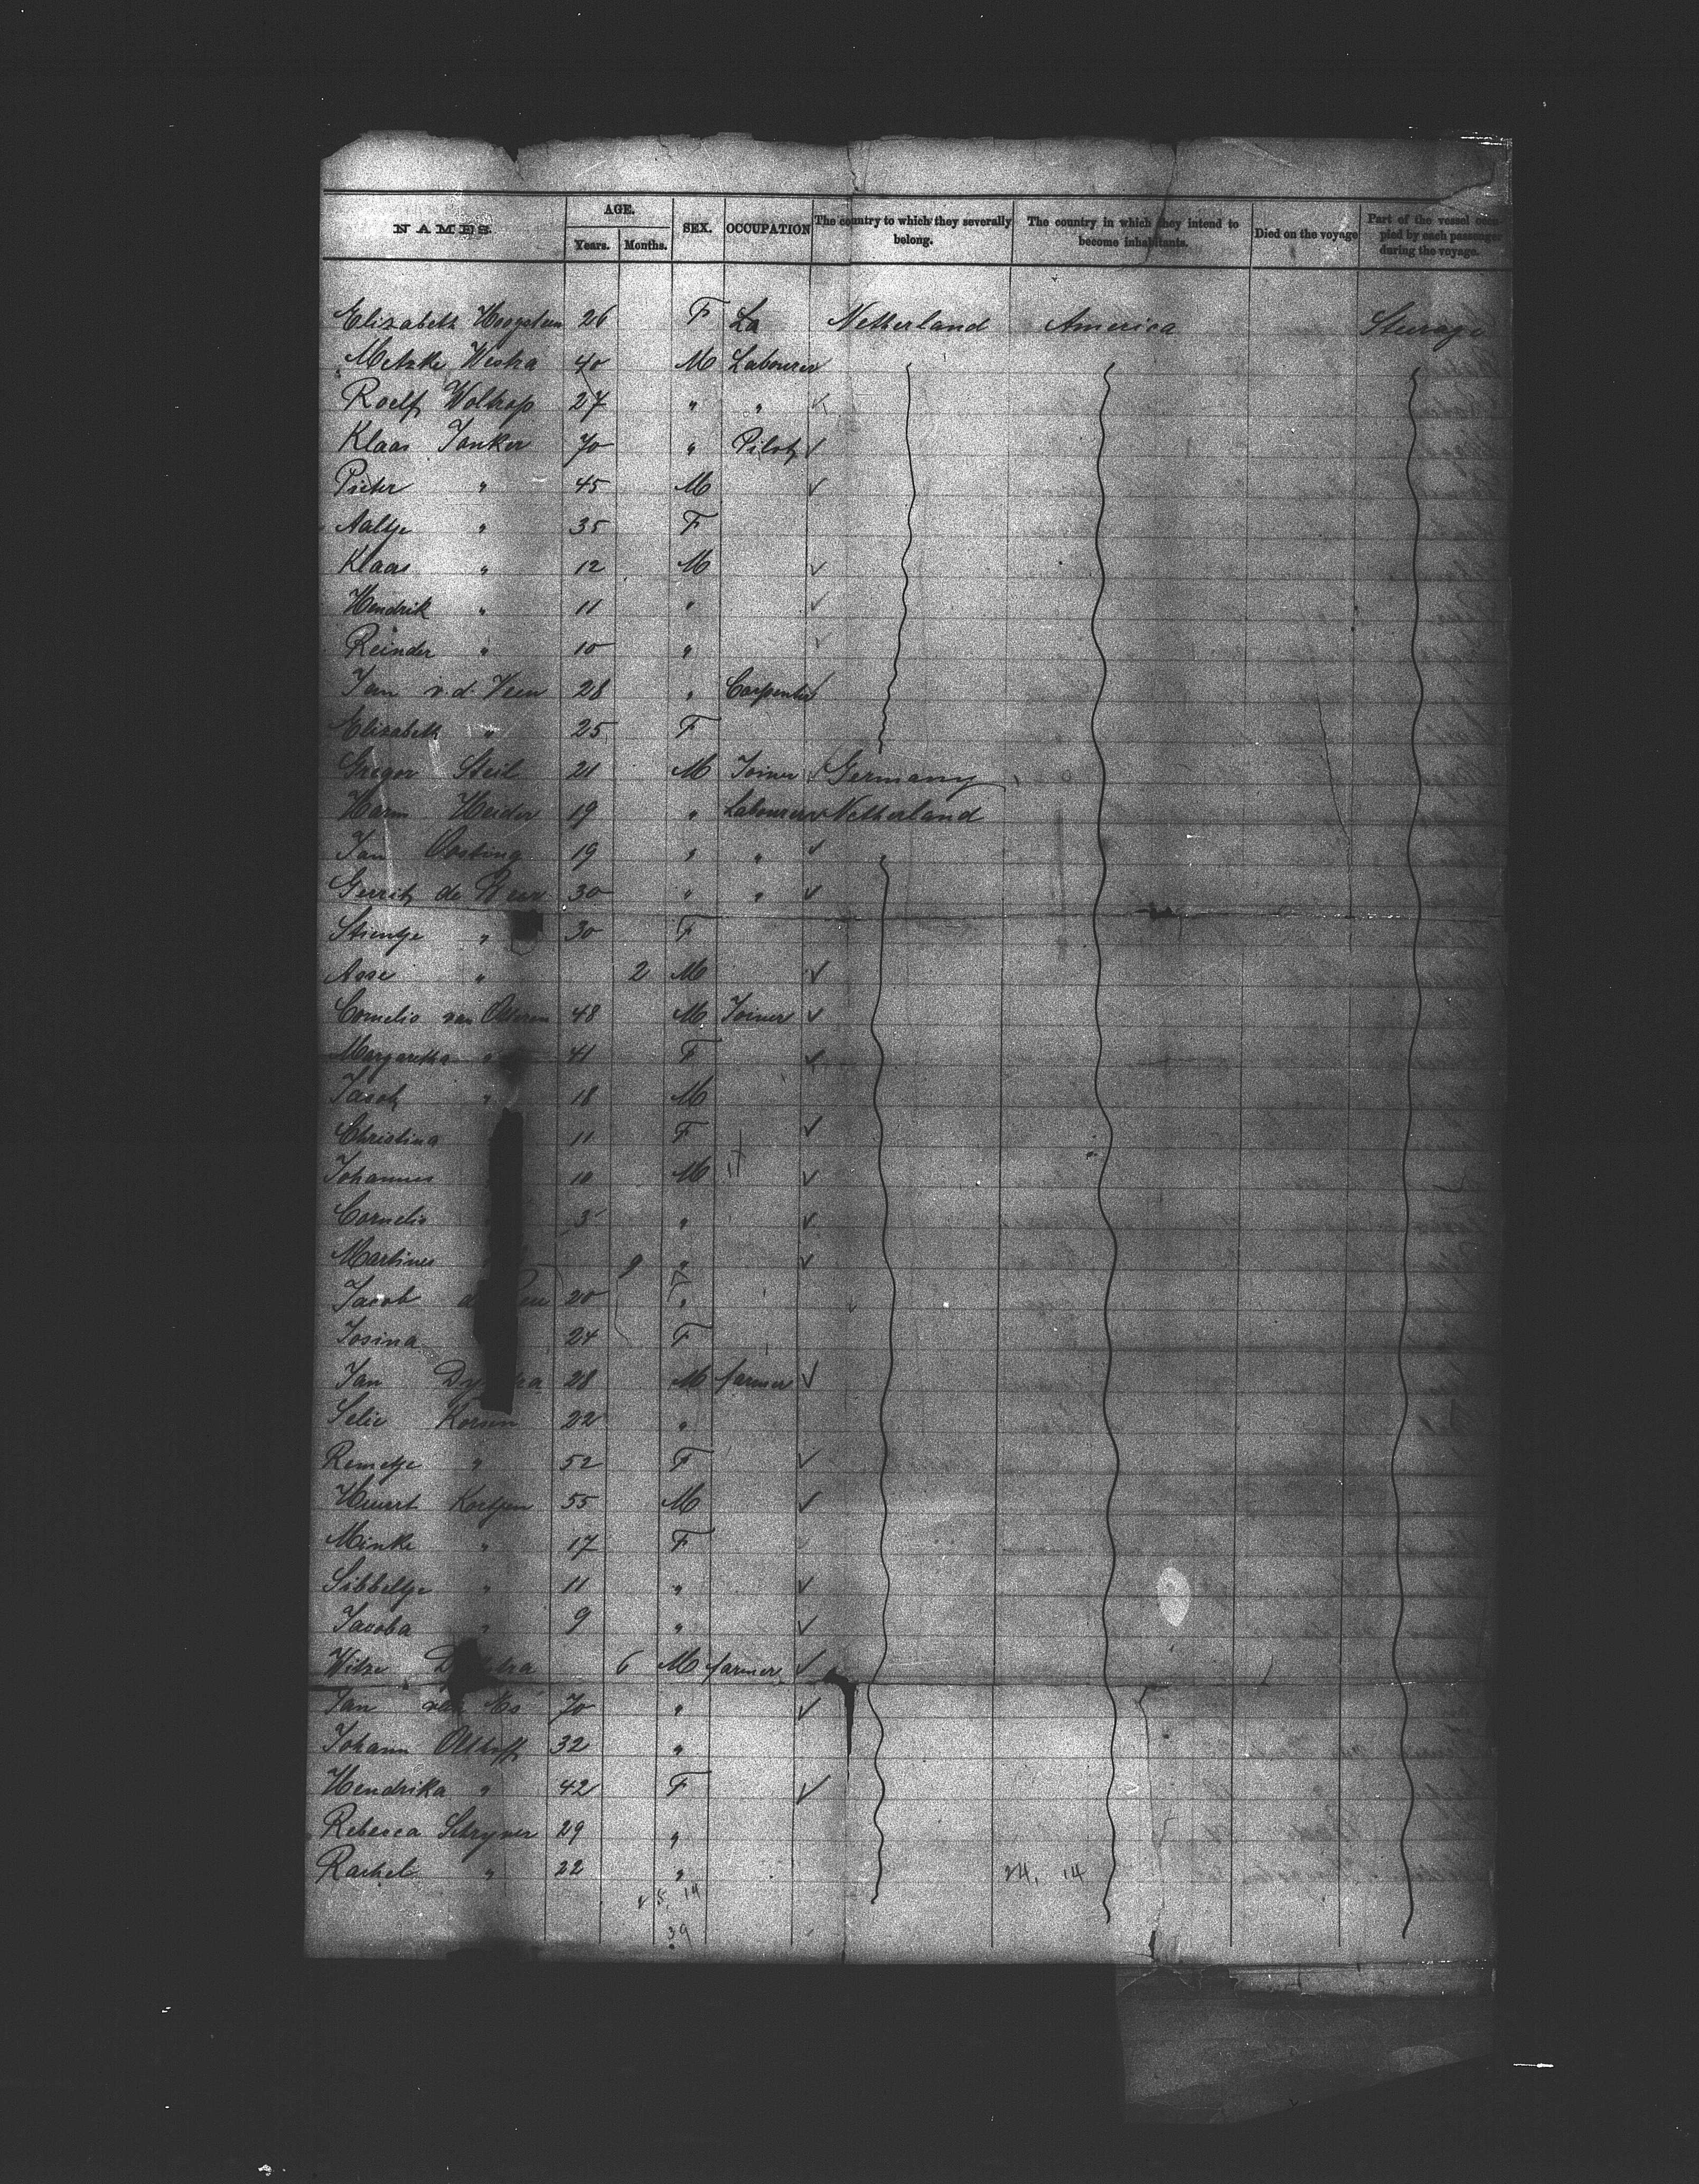 NAMES. AGE. SEX. OCCUPATION The country to which they severally belong. The country in which they intend to become inhabitants. Died on the voyage Part of the vessel occupied by each passenger during the voyage.
Years. Months.
Elizabeth 26 F La Netherland America Steerage
Metske Westra 40 M Labourer
Roelf Woltrop 27 " "
Klaas Jonker 70 " Pilot
Pieter " 45 M
Aaltje " 35 F
Klaas " 12 M
Hendrik " 11 "
Reinder " 10 "
Jan v.d. Veen 28 " Carpenter
Elizabeth " 25 F
Gregor Steil 21 M Joiner Germany
Harm Heider 19 " Labourer Netherland
Jan Oosting 19 " "
Gerrit de 30 " "
Stientje " 30 F
Asse " 2 M
Cornelis van 48 M Joiner
Margaretha " 41 F
Jacob " 18 M
Christina 11 F
Johannes 10 M
Cornelis 3 "
Martinus 9 "
Jacob 20 "
Josina 24 F
Jan 28 M farmer
Selie Korsen 22 "
Remetje " 52 F
55 M
Minke " 17 F
Sibbeltje " 11 "
Jacoba " 9 "
Witze 6 M farmer
Jan van Es 70 "
Johann Olthoff 32 "
Hendrika " 42 F
Rebecca Schryver 29 "
Rachel " 22 " 24. 14
25 14
39